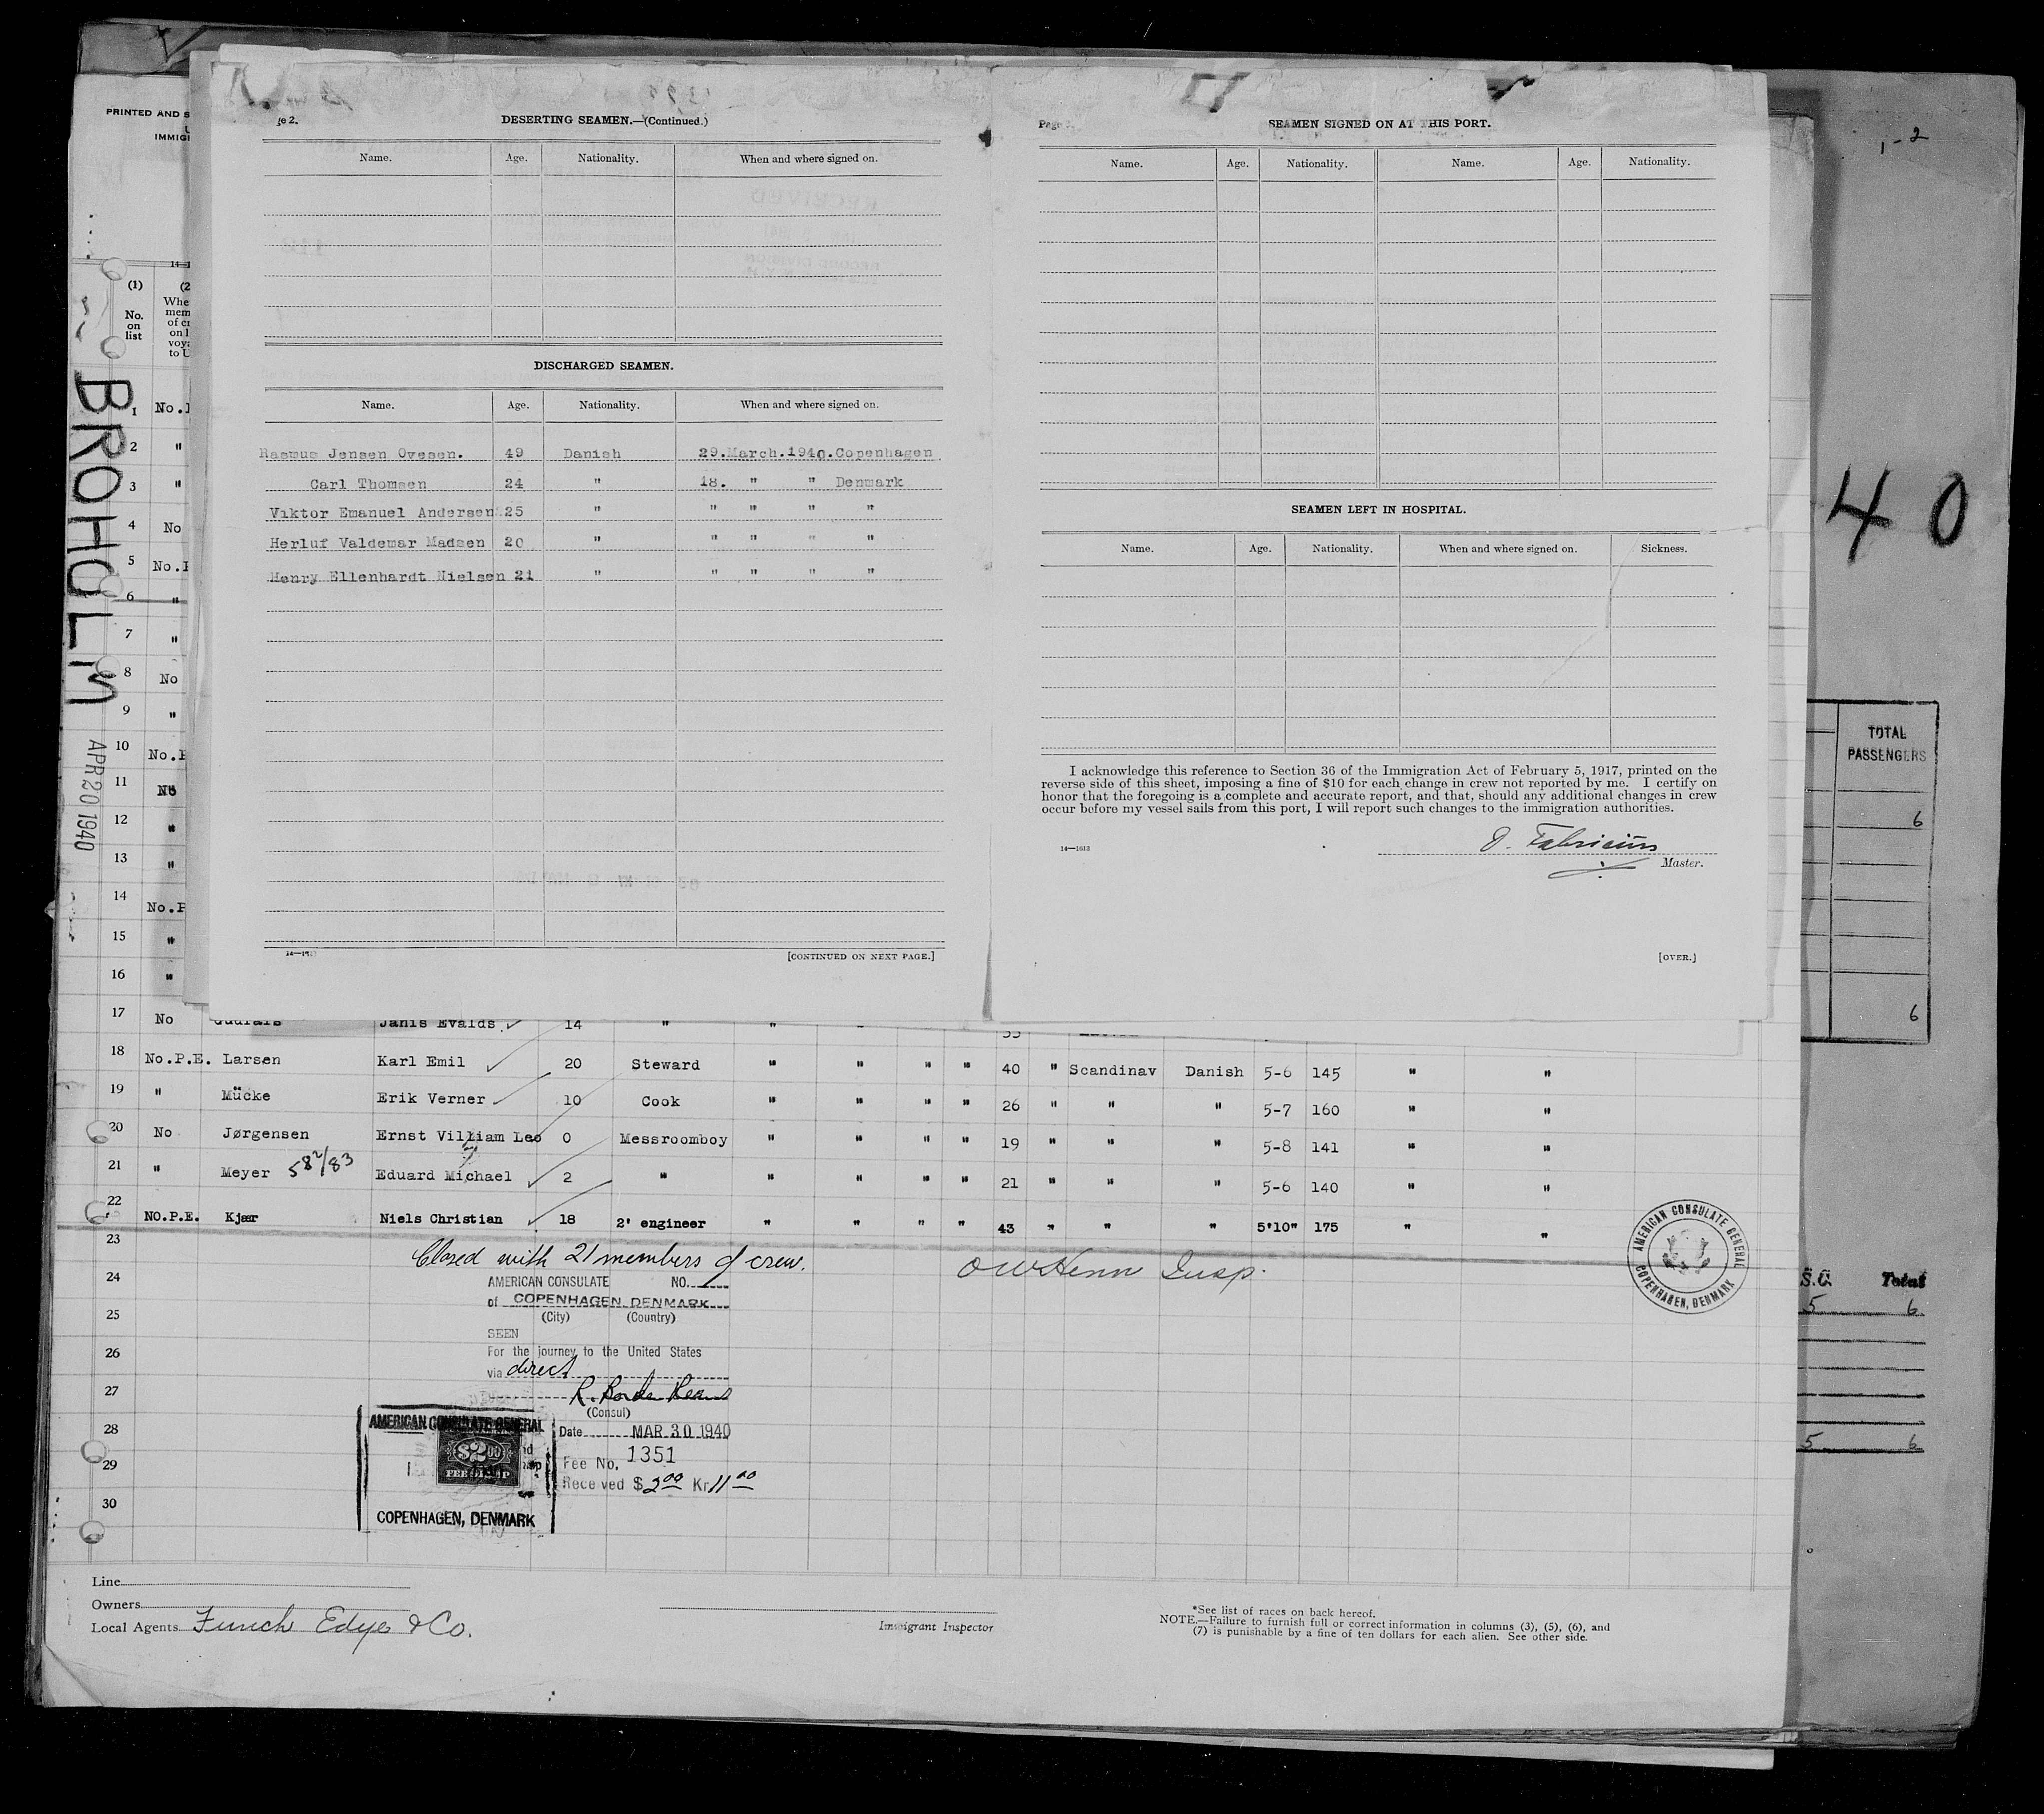 PRINTED AND S
IMMIG
ge 2.
DESERTING SEAMEN.—(Continued.)
Name. Age. Nationality. When and where signed on.
DISCHARGED SEAMEN.
Name. Age. Nationality. When and where signed on.
Rasmus Jensen Ovesen. 49 Danish 29.March.1940.Copenhagen
Carl Thomsen 24 " 18. " " Denmark
Viktor Emanuel Andersen 25 " " " " "
Herluf Valdemar Madsen 20 " " " " "
Henry Ellenhardt Nielsen 21 " " " " "
[CONTINUED ON NEXT PAGE.]
Page
SEAMEN SIGNED ON AT THIS PORT.
Name. Age. Nationality. Name. Age. Nationality.
SEAMEN LEFT IN HOSPITAL.
Name. Age. Nationality. When and where signed on. Sickness.
I acknowledge this reference to Section 36 of the Immigration Act of February 5, 1917, printed on the
reverse side of this sheet, imposing a fine of $10 for each change in crew not reported by me. I certify on
honor that the foregoing is a complete and accurate report, and that, should any additional changes in crew
occur before my vessel sails from this port, I will report such changes to the immigration authorities.
O. Fabricius
14—1613
Master.
[OVER.]
1-2
40
TOTAL
PASSENGERS
6
6
S.C. Total
5 6
5 6
(1) (2
No.
on
list
Whe
mem
of cr
on l
voya
to U
BROHOLM
APR 20 1940
1 No.P
2 "
3 "
4 No
5 No.P
6 "
7 "
8 No
9 "
10 No.P
11 No
12 "
13 "
14 No.P
15 "
16 "
17 No Janis Evalds 14 " "
18 No.P.E. Larsen Karl Emil 20 Steward " " " " 40 " Scandinav Danish 5-6 145 " "
19 " Mücke Erik Verner 10 Cook " " " " 26 " " " 5-7 160 " "
20 No Jørgensen Ernst Villiam Leo 0 Messroomboy " " " " 19 " " " 5-8 141 " "
21 " Meyer 582/83 Eduard Michael 2 " " " " " 21 " " " 5-6 140 " "
22 NO.P.E. Kjær Niels Christian 18 2' engineer " " " " 43 " " " 5'10" 175 " "
23
Closed with 21 members of crew. O W Henn Insp.
24
25
26
27
28
29
30
AMERICAN CONSULATE NO.
of COPENHAGEN DENMARK
(City) (Country)
SEEN
For the journey to the United States
via direct
(Consul)
Date MAR 30 1940
Fee No. 1351
Received $2.00 Kr 11.00
AMERICAN CONSULATE GENERAL
$2.00
FEE STAMP
COPENHAGEN, DENMARK
AMERICAN CONSULATE GENERAL
COPENHAGEN, DENMARK
Line
Owners
Local Agents Funch Edye & Co.
Immigrant Inspector
*See list of races on back hereof.
NOTE.—Failure to furnish full or correct information in columns (3), (5), (6), and
(7) is punishable by a fine of ten dollars for each alien. See other side.